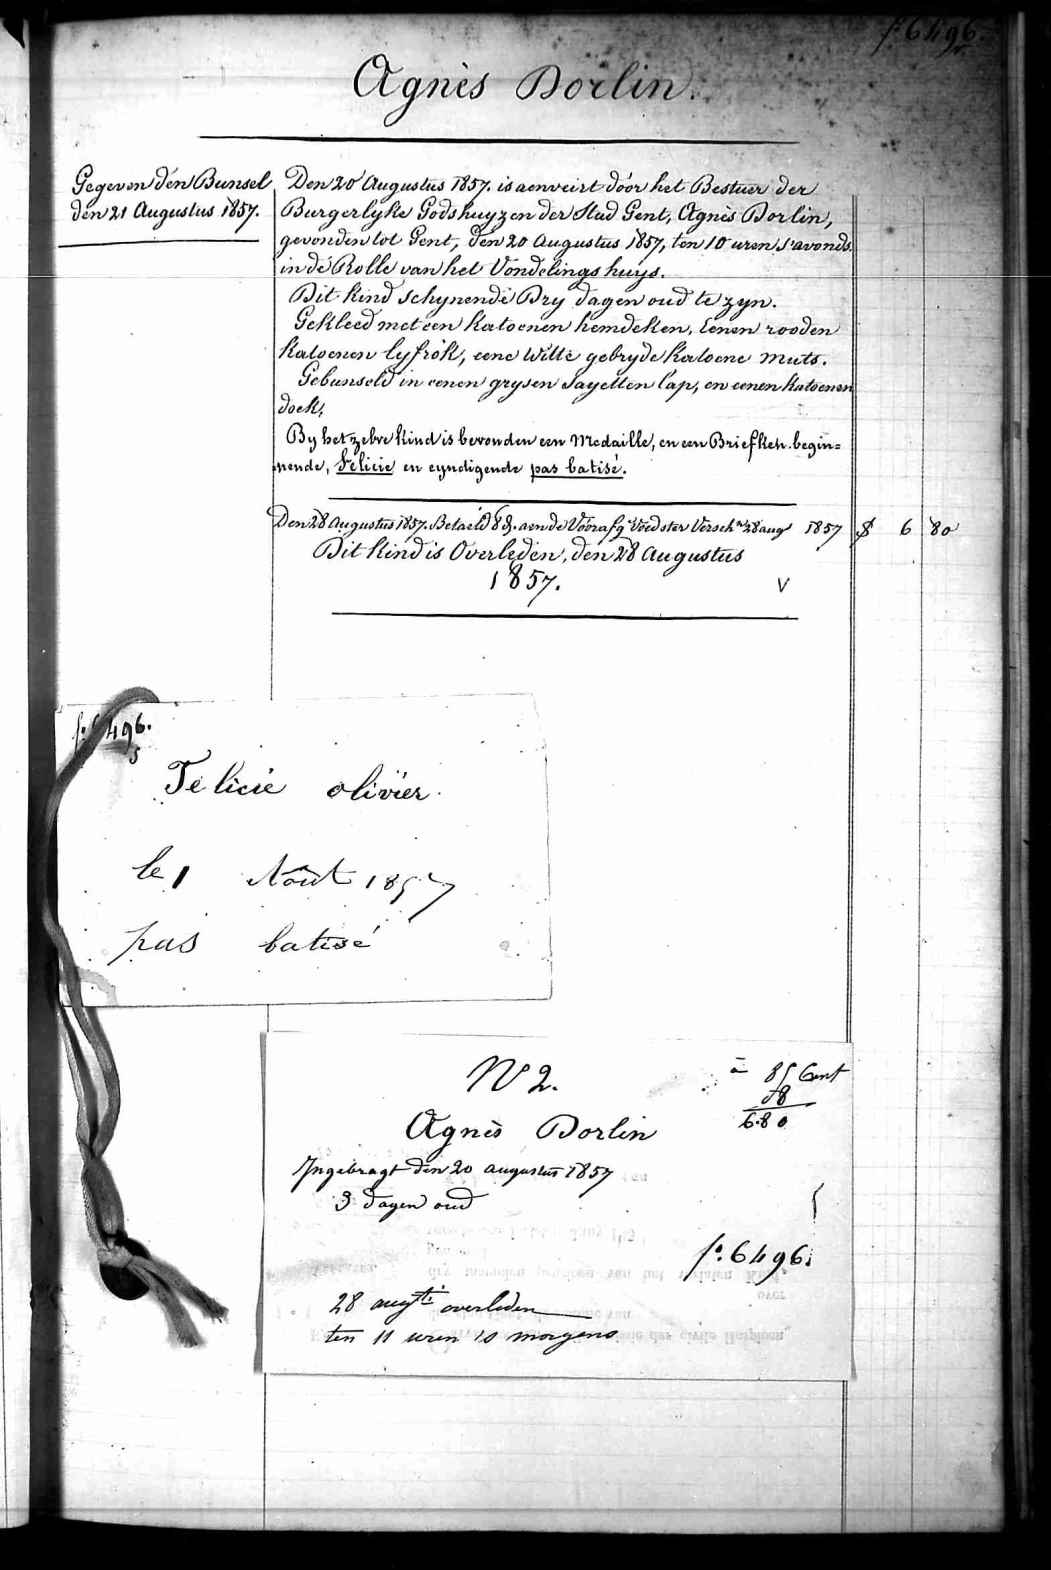 f.° 6496.
Agnès Dorlin.
Gegeven den Bunsel
den 21 Augustus 1857.
Den 20 Augustus 1857. is aenveirt dóor het Bestuer der
Burgerlyke Godshuyzen der Stad Gent, Agnès Dorlin,
gevonden tot Gent, den 20 Augustus 1857, ten 10 uren s'avonds
in dé Rolle van het Vondelingshuys.
Dit kind schynende Dry dagen oud te zyn.
Gekleed met een katoenen hemdeken, Eenen rooden
katoenen lyfrok, eene witte gebryde katoene muts.
Gebunseld in eenen grysen Sayetten lap, en eenen katoenen
doek,
By het zelve kind is bevonden een Medaille, en een Briefken begin=
nende, Felicie en eyndigende pas batisé.
Den 28 Augustus 1857. Betaeld 8 d. aen de Voorafg Voedster Versch 28 aug 1857 $ 6 80
Dit kind is Overleden, den 28 Augustus
1857. V
f.° 6496.
Félicié olivier.
le 1 Août 1857
pas batisé
N° 2.
à 85 Cent
8
6.80
Agnès Dorlin
Ingebragt den 20 augustus 1857
3 dagen oud
f.° 6496.
28 augti overleden
ten 11 uren 's morgens